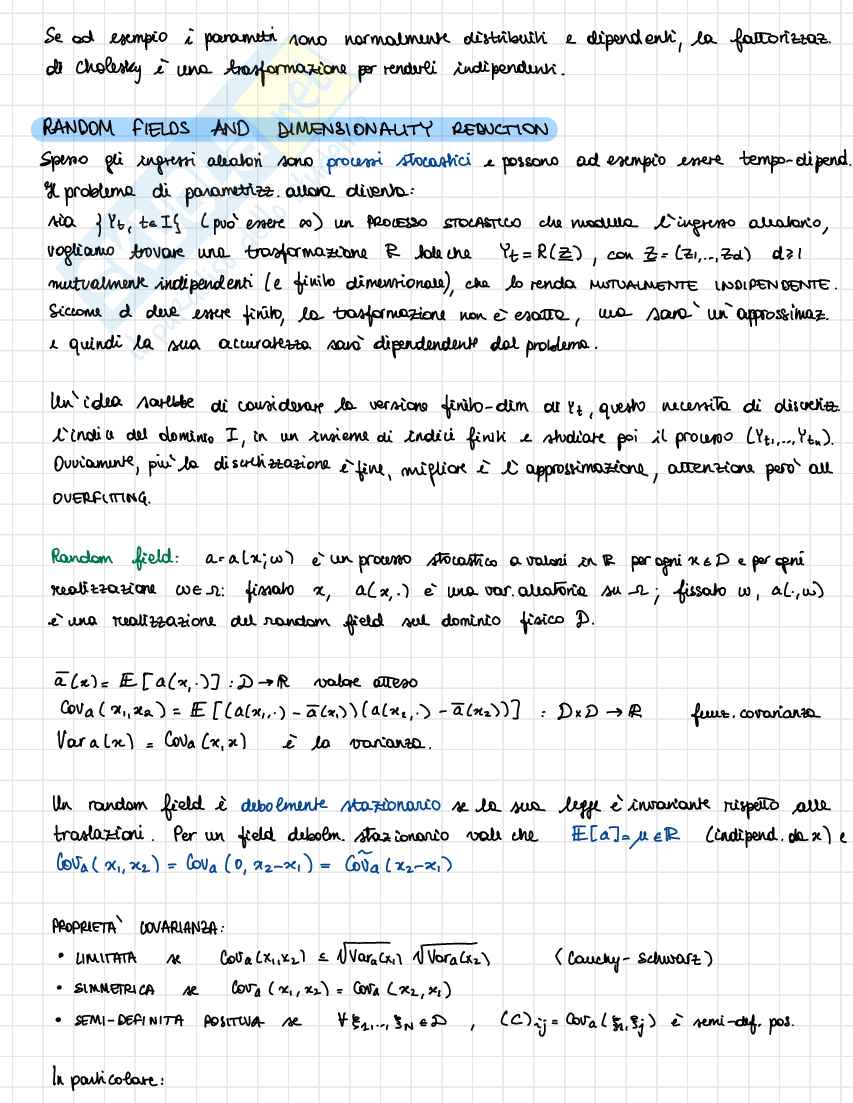 Se ad esempio i parametri sono normalmente distribuiti e dipendenti, la fattorizzaz.
di Cholesky è una trasformazione per renderli indipendenti.
RANDOM FIELDS AND DIMENSIONALITY REDUCTION
Spesso gli ingressi aleatori sono processi stocastici e possono ad esempio essere tempo-dipend.
Il problema di parametrizz. allora diventa:
sia {Y_t, t∈I} (può essere ∞) un PROCESSO STOCASTICO che modella l'ingresso aleatorio,
vogliamo trovare una trasformazione R tale che Y_t = R(Z), con Z = (Z_1,..,Z_d) d≥1
mutualmente indipendenti (e finito dimensionale), che lo renda MUTUALMENTE INDIPENDENTE.
Siccome d deve essere finito, la trasformazione non è esatta, ma sarà un'approssimaz.
e quindi la sua accuratezza sarà dipendendente dal problema.
Un'idea sarebbe di considerare la versione finito-dim di Y_t, questo necessita di discretizz.
l'indice del dominio I, in un insieme di indici finiti e studiare poi il processo (Y_t1,..,Y_tn).
Ovviamente, più la discretizzazione è fine, migliore è l'approssimazione, attenzione però all
OVERFITTING.
Random field: a=a(x;ω) è un processo stocastico a valori in ℝ per ogni x∈D e per ogni
realizzazione ω∈Ω: fissato x, a(x,·) è una var. aleatoria su Ω; fissato ω, a(·,ω)
è una realizzazione del random field sul dominio fisico D.
ā(x) = E[a(x,·)] : D→ℝ valore atteso
Cov_a(x_1,x_2) = E[(a(x_1,·) - ā(x_1))(a(x_2,·) - ā(x_2))] : D×D → ℝ funz. covarianza
Var a(x) = Cov_a(x,x) è la varianza.
Un random field è debolmente stazionario se la sua legge è invariante rispetto alle
traslazioni. Per un field debolm. stazionario vale che E[a]=μ∈ℝ (indipend. da x) e
Cov_a(x_1,x_2) = Cov_a(0, x_2-x_1) = C̃ov_a(x_2-x_1)
PROPRIETA' COVARIANZA:
• LIMITATA se Cov_a(x_1,x_2) ≤ √Var_a(x_1) √Var_a(x_2) (Cauchy-Schwarz)
• SIMMETRICA se Cov_a(x_1,x_2) = Cov_a(x_2,x_1)
• SEMI-DEFINITA POSITIVA se ∀ξ_1,..,ξ_N∈D, (C)_ij = Cov_a(ξ_i,ξ_j) è semi-def. pos.
In particolare: